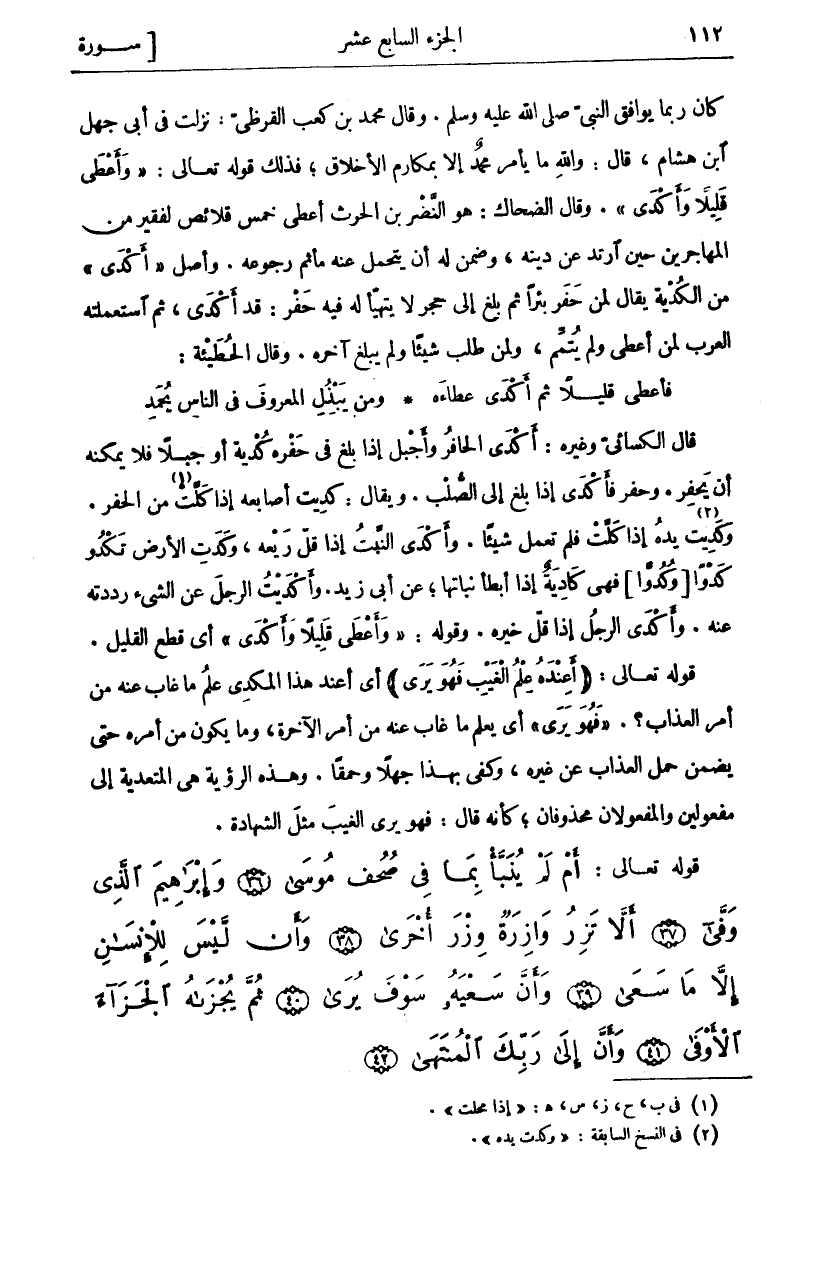 ١١٢ الجزء السابع عشر [ سـورة
كان ربما يوافق النبيّ صلى الله عليه وسلم . وقال محمد بن كعب القرظىّ : نزلت فى أبى جهل
ٱبن هشام ، قال : واللهِ ما يأمر محمدٌ إلا بمكارم الأخلاق ؛ فذلك قوله تعـالى : « وَأَعْطَى
قَلِيلًا وَأَكْدَى » . وقال الضحاك : هو النَّضْر بن الحرث أعطى خمس قلائص لفقير من
المهاجرين حين ٱرتد عن دينه ، وضمن له أن يتحمل عنه مأثم رجوعه . وأصل « أَكْدَى »
من الكُدْية يقال لمن حَفَر بئرًا ثم بلغ إلى حجر لا يتهيأ له فيه حَفْر : قد أَكْدَى ، ثم ٱستعملته
العرب لمن أعطى ولم يُتمِّم ، ولمن طلب شيئًا ولم يبلغ آخره . وقال الحُطَيْئة :
فأعطى قليـلًا ثم أَكْدَى عطاءَه * ومن يَبْذُلِ المعروفَ فى الناس يُحْمَدِ
قال الكسائىّ وغيره : أَكْدَى الحافرُ وأَجْبل إذا بلغ فى حَفْره كُدْية أو جبـلًا فلا يمكنه
أن يَحفِر . وحفر فأَكْدَى إذا بلغ إلى الصُّلْب . ويقال : كديت أصابعه إذا كَلَّتْ (١) من الحفر .
وكَدِيت (٢) يدهُ إذا كَلَّتْ فلم تعمل شيئًا . وأَكْدَى النَّبْتُ إذا قلّ رَيْعه ، وكَدَتِ الأرض تَكْدُو
كَدْوًا [وَكُدُوًّا] فهى كَادِيَةٌ إذا أبطأ نباتها ؛ عن أبى زيد . وأَكْدَيْتُ الرجلَ عن الشىء رددته
عنه . وأَكْدَى الرجلُ إذا قلّ خيره . وقوله : « وَأَعْطَى قَلِيلًا وَأَكْدَى » أى قطع القليل .
قوله تعـالى : ﴿أَعِنْدَهُ عِلْمُ الْغَيْبِ فَهُوَ يَرَى﴾ أى أعند هذا المكدى علمُ ما غاب عنه من
أمر العذاب؟ . «فَهُوَ يَرَى» أى يعلم ما غاب عنه من أمر الآخرة، وما يكون من أمره حتى
يضمن حمل العذاب عن غيره ، وكفى بهـذا جهلًا وحمقًا . وهـذه الرؤية هى المتعدية إلى
مفعولين والمفعولان محذوفان ؛ كأنه قال : فهو يرى الغيبَ مثلَ الشهادة .
قوله تعـالى : أَمْ لَمْ يُنَبَّأْ بِمَـا فِى صُحُفِ مُوسَىٰ ﴿٣٦﴾ وَإِبْرَٰهِيمَ ٱلَّذِى
وَفَّىٰٓ ﴿٣٧﴾ أَلَّا تَزِرُ وَازِرَةٌ وِزْرَ أُخْرَىٰ ﴿٣٨﴾ وَأَن لَّيْسَ لِلْإِنسَـٰنِ
إِلَّا مَا سَـعَىٰ ﴿٣٩﴾ وَأَنَّ سَـعْيَهُۥ سَوْفَ يُرَىٰ ﴿٤٠﴾ ثُمَّ يُجْزَىٰهُ ٱلْجَـزَآءَ
ٱلْأَوْفَىٰ ﴿٤١﴾ وَأَنَّ إِلَىٰ رَبِّكَ ٱلْمُنتَهَىٰ ﴿٤٢﴾
(١) فى ب، ح، ز، س، ه : « إذا محلت » .
(٢) فى النسخ السابقة : « وكدت يده » .